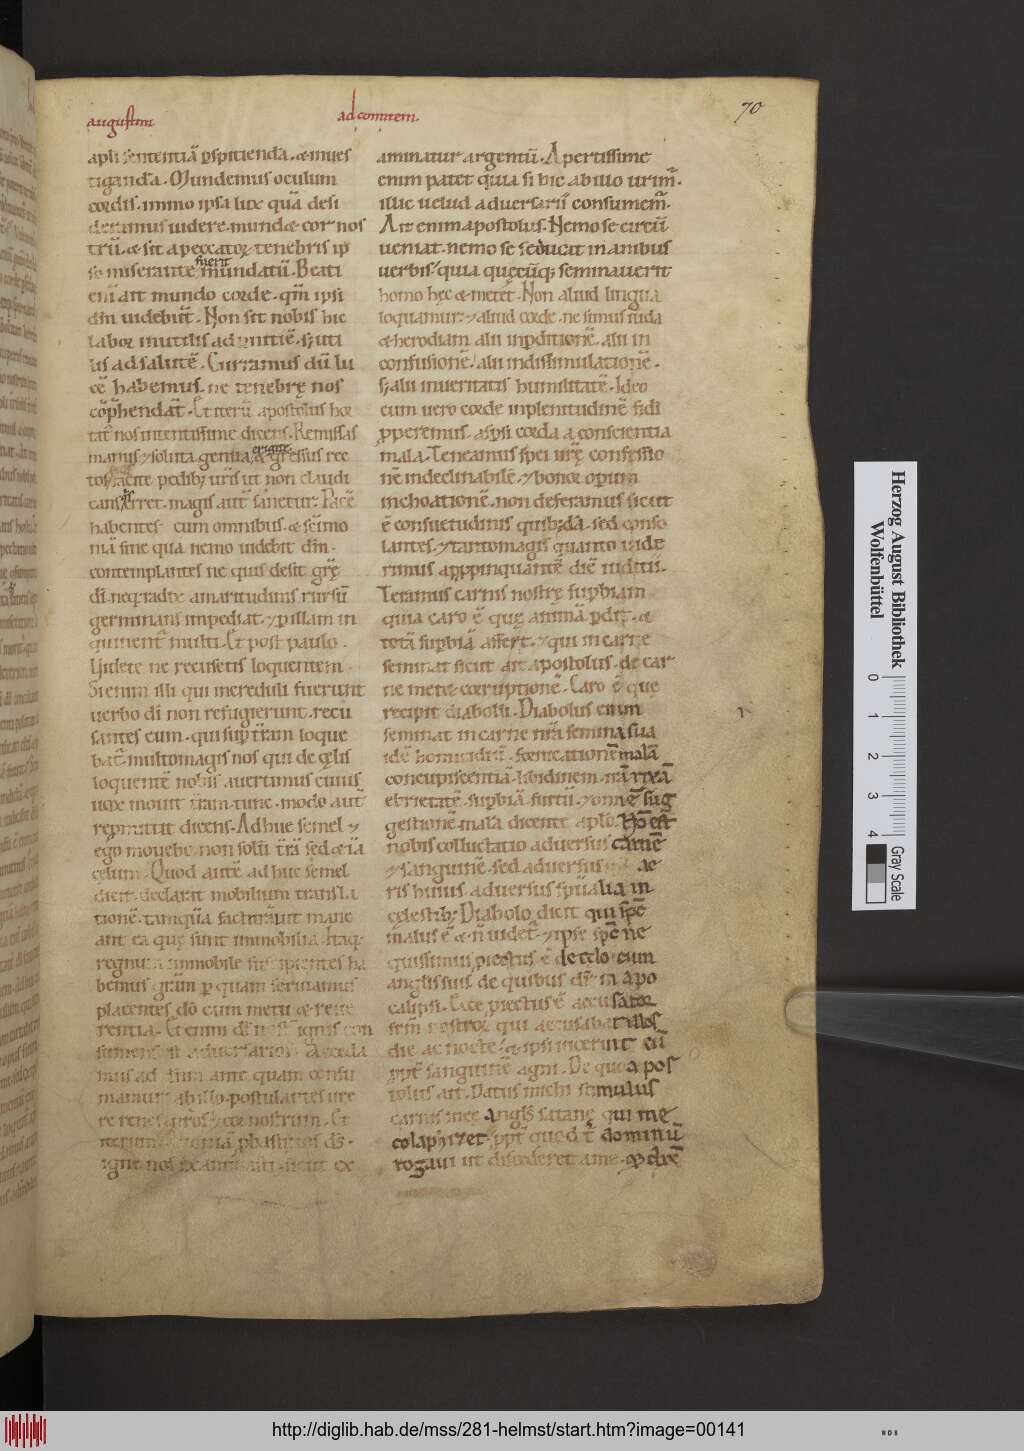 augustini
ad comitem.
70
apli sententiā ꝑspitienda. & inues
tiganda. Mundemus oculum
cordis. immo ipsa lux quā desi
deramus uidere. mund& cor nos
trū. & sit a peccatorꝝ tenebris ip
so miserante fuerit mundatū. Beati
eni ait mundo corde. qm̄ ipsi
dm̄ uidebūt. Non sit nobis hic
labor inutilis ad sed uti
lis ad salutē. Curramus dū lu
cē habemus. ne tenebrę nos
cōp̄hendāt. Et iterū apostolus hor
tat̄ nos intentissime dicens. Remissas
manus & soluta genua erigite & gressus rec
tos facite pedibꝫ ur̄is ut non claudi
cans erret. magis aut̄ sanetur. Pacē
habentes cum omnibus. & sc̄imo
niā sine qua nemo uidebit dm̄.
contemplantes ne quis desit grę̄
dī. neq; radix amaritudinis rursū
germinans impediat. & ꝑ illam in
quinent̄ multi. Et post paulo.
Uidete ne recusetis loquentem.
Si enim illi qui increduli fuerunt
uerbo dī non refugierunt. recu
santes eum. qui sup̄ tr̄am loque
bat̄. multomagis nos qui de cęlis
loquentē nobis auertimus cuius
uox mouit tr̄am tunc. modo aut̄
repmittit dicens. Adhuc semel &
ego mouebo. non solū tr̄ā sed & iā
cęlum. Quod autē adhuc semel
dicit. declarat mobilium transla
tionē. tamquā factoꝝ ut mane
ant ea quę sunt immobilia. Itaq;
regnum immobile suscipientes ha
bemus gr̄am ꝑ quam seruiamus
placentes dō cum metu & reue
rentia. Et enim ds̄ nost̄ ignis con
sumens aduersarios. Acceda
mus ad ante quam consu
mamur ab illo. postulantes ure
re renes nr̄os & cor nostrum. Et
iterum ds̄.
igne nos sicut ex
aminatur argentū. Apertissime
enim patet quia si hic ab illo urim̄.
illic uelud aduersarii consumem̄.
Ait enim apostolus. Nemo se circū
ueniat. nemo se seducat inanibus
uerbis. quia quęcūq; seminauerit
homo hęc & met&. Non aliud lingua
loquamur. & aliud corde. ne simus iuda
& herodiam alii in ꝑditionē. alii in
confusionē. alii in dissimulationē.
sꝫ alii in ueritatis humilitatē. Ideo
cum uero corde in plenitudinē fidi
ꝓperemus. aspsi corda a conscientia
mala. Teneamus spei urę̄ confessio
nē indeclinabilē. & bonoꝝ operum
inchoationē. non deseramus sicut
ē consuetudinis quibꝫdā. sed conso
lantes. & tanto magis quanto uide
rimus appropinquantē diē iuditii.
Teramus carnis nostrę sup̄biam
quia caro ē que animā ꝑdit. &
totā sup̄biā affert. & qui in carne
seminat sicut ait apostolus. de car
ne met& corruptionē. Caro ē que
recipit diabolū. Diabolus enim
seminat in carne nr̄a semina sua
idē homicidiū. fornicationē malā
concupiscentiā. libidinem. irā rixā
ebrietatē. sup̄biā. furtū. & omē sug
gestionē. mala dicente aplo. Nō est
nobis colluctatio aduersus carnē
& sanguinē. sed aduersus ae
ris huius. aduersus spū̄alia in
cęlestibꝫ. Diabolo dicit qui spē
malus ē & n̄ uidet̄. & ipse spē ne
quissimus. piectus ē de cęlo cum
anglis suis. de quibus ds̄ in apo
calipsi. Ecce piectus ē accusator
frm̄ nostroꝝ qui accusabat illos
die ac nocte. & ipsi uicerunt eū
ꝓpt̄ sanguinē agni. De quo apos
tolus ait. Datus michi stimulus
carnis meę angls̄ satanę qui me
colaphizet. ꝓpt̄ quod t̄ dominū
rogaui ut discederet a me. & dix̄
Herzog August Bibliothek
Wolfenbüttel
0
1
2
3
4
Gray Scale
http://diglib.hab.de/mss/281-helmst/start.htm?image=00141
WDB